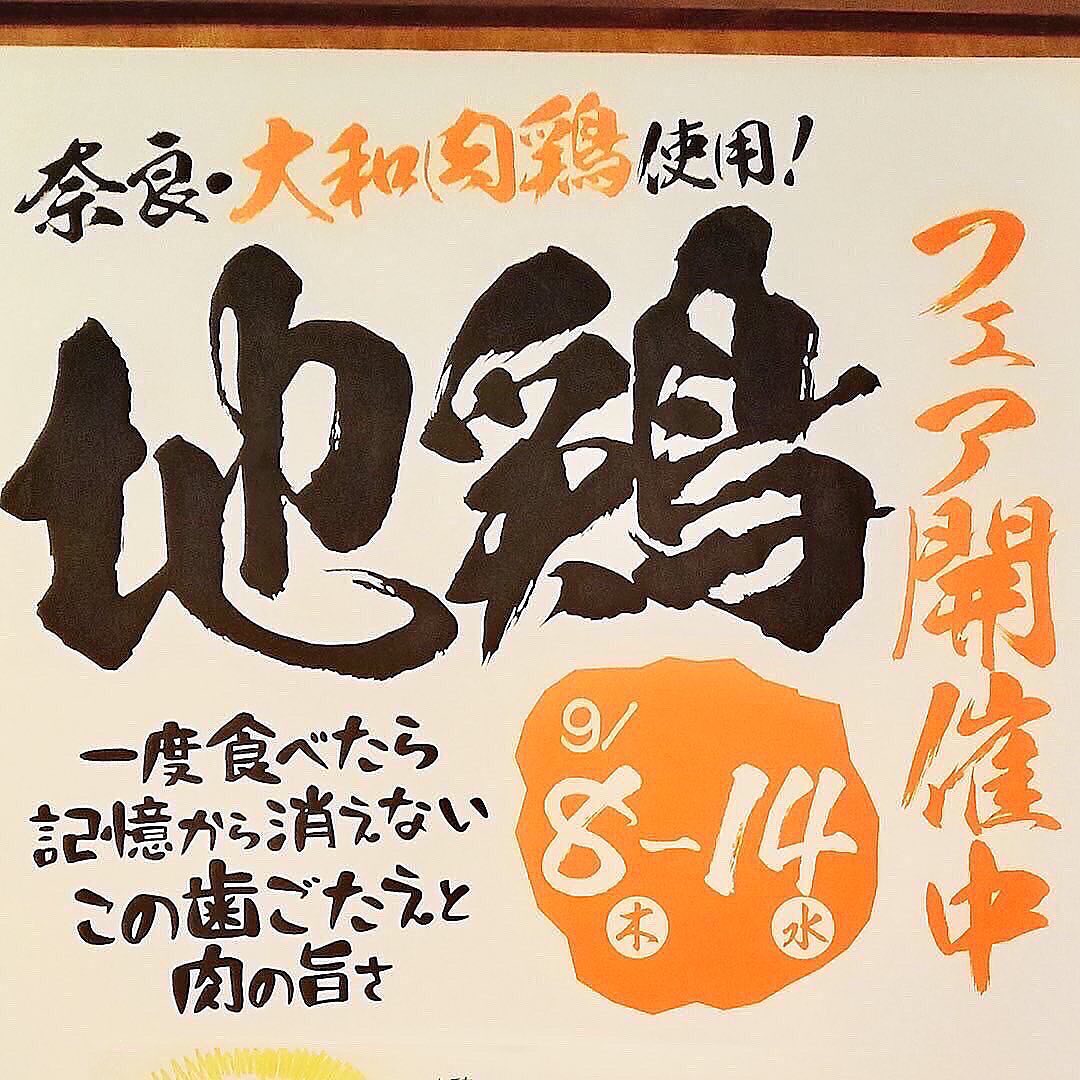 奈良・大和肉鶏使用!
地鶏
フェア開催中
一度食べたら
記憶から消えない
この歯ごたえと
肉の旨さ
9/
8-14
木 水